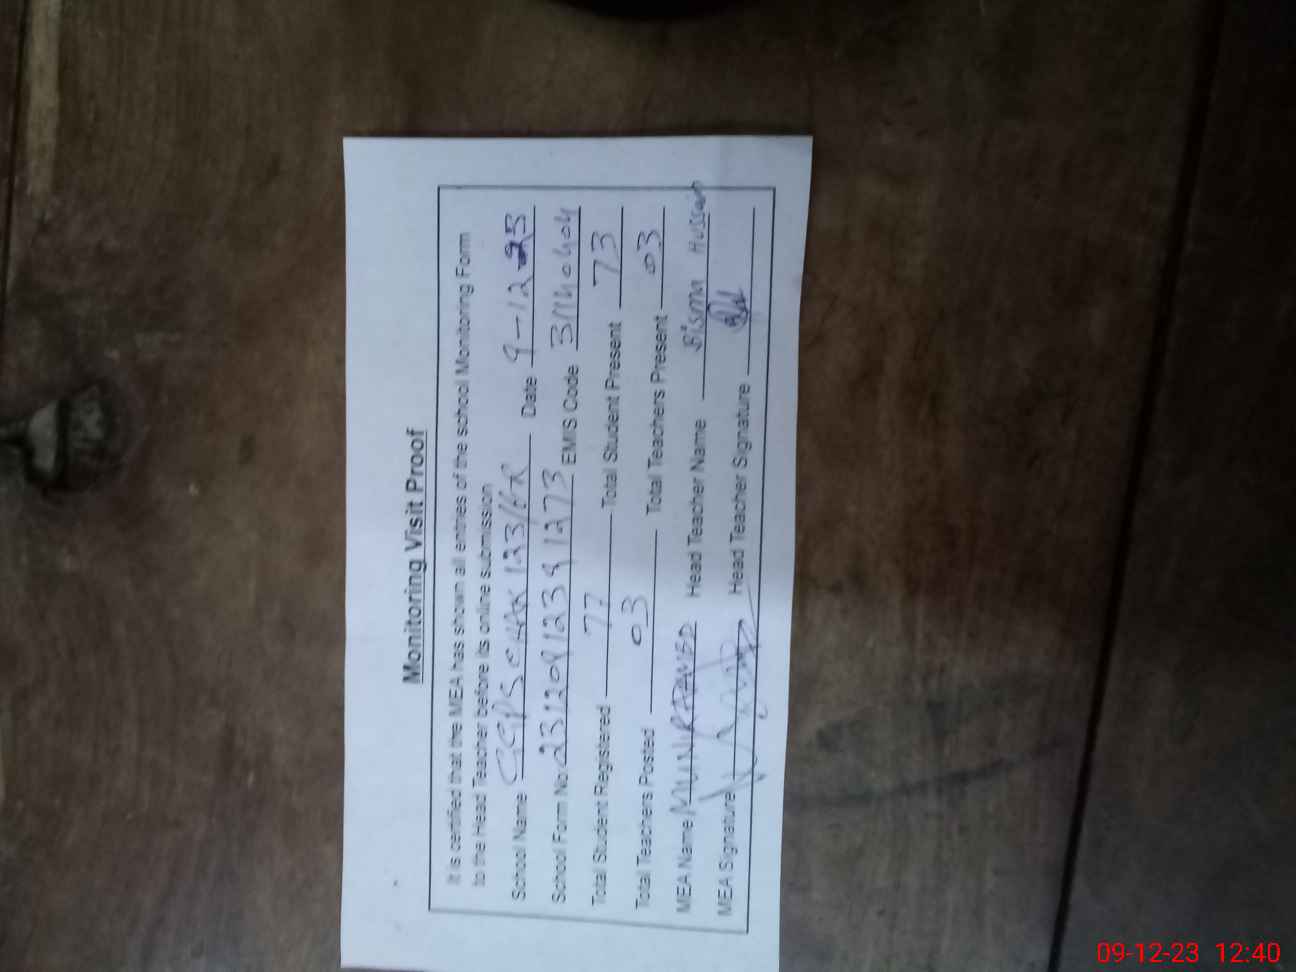 Monitoring Visit Proof
It is certified that the MEA has shown all entries of the school Monitoring Form
to the Head Teacher before its online submission
School Name GGPS CHAK 123/6R Date 9-12-23
School Form No: 23120912391273 EMIS Code
Total Student Registered 77 Total Student Present 73
Total Teachers Posted 03 Total Teachers Present 03
MEA Name Head Teacher Name Bisma Hussain
MEA Signature Head Teacher Signature
09-12-23 12:40